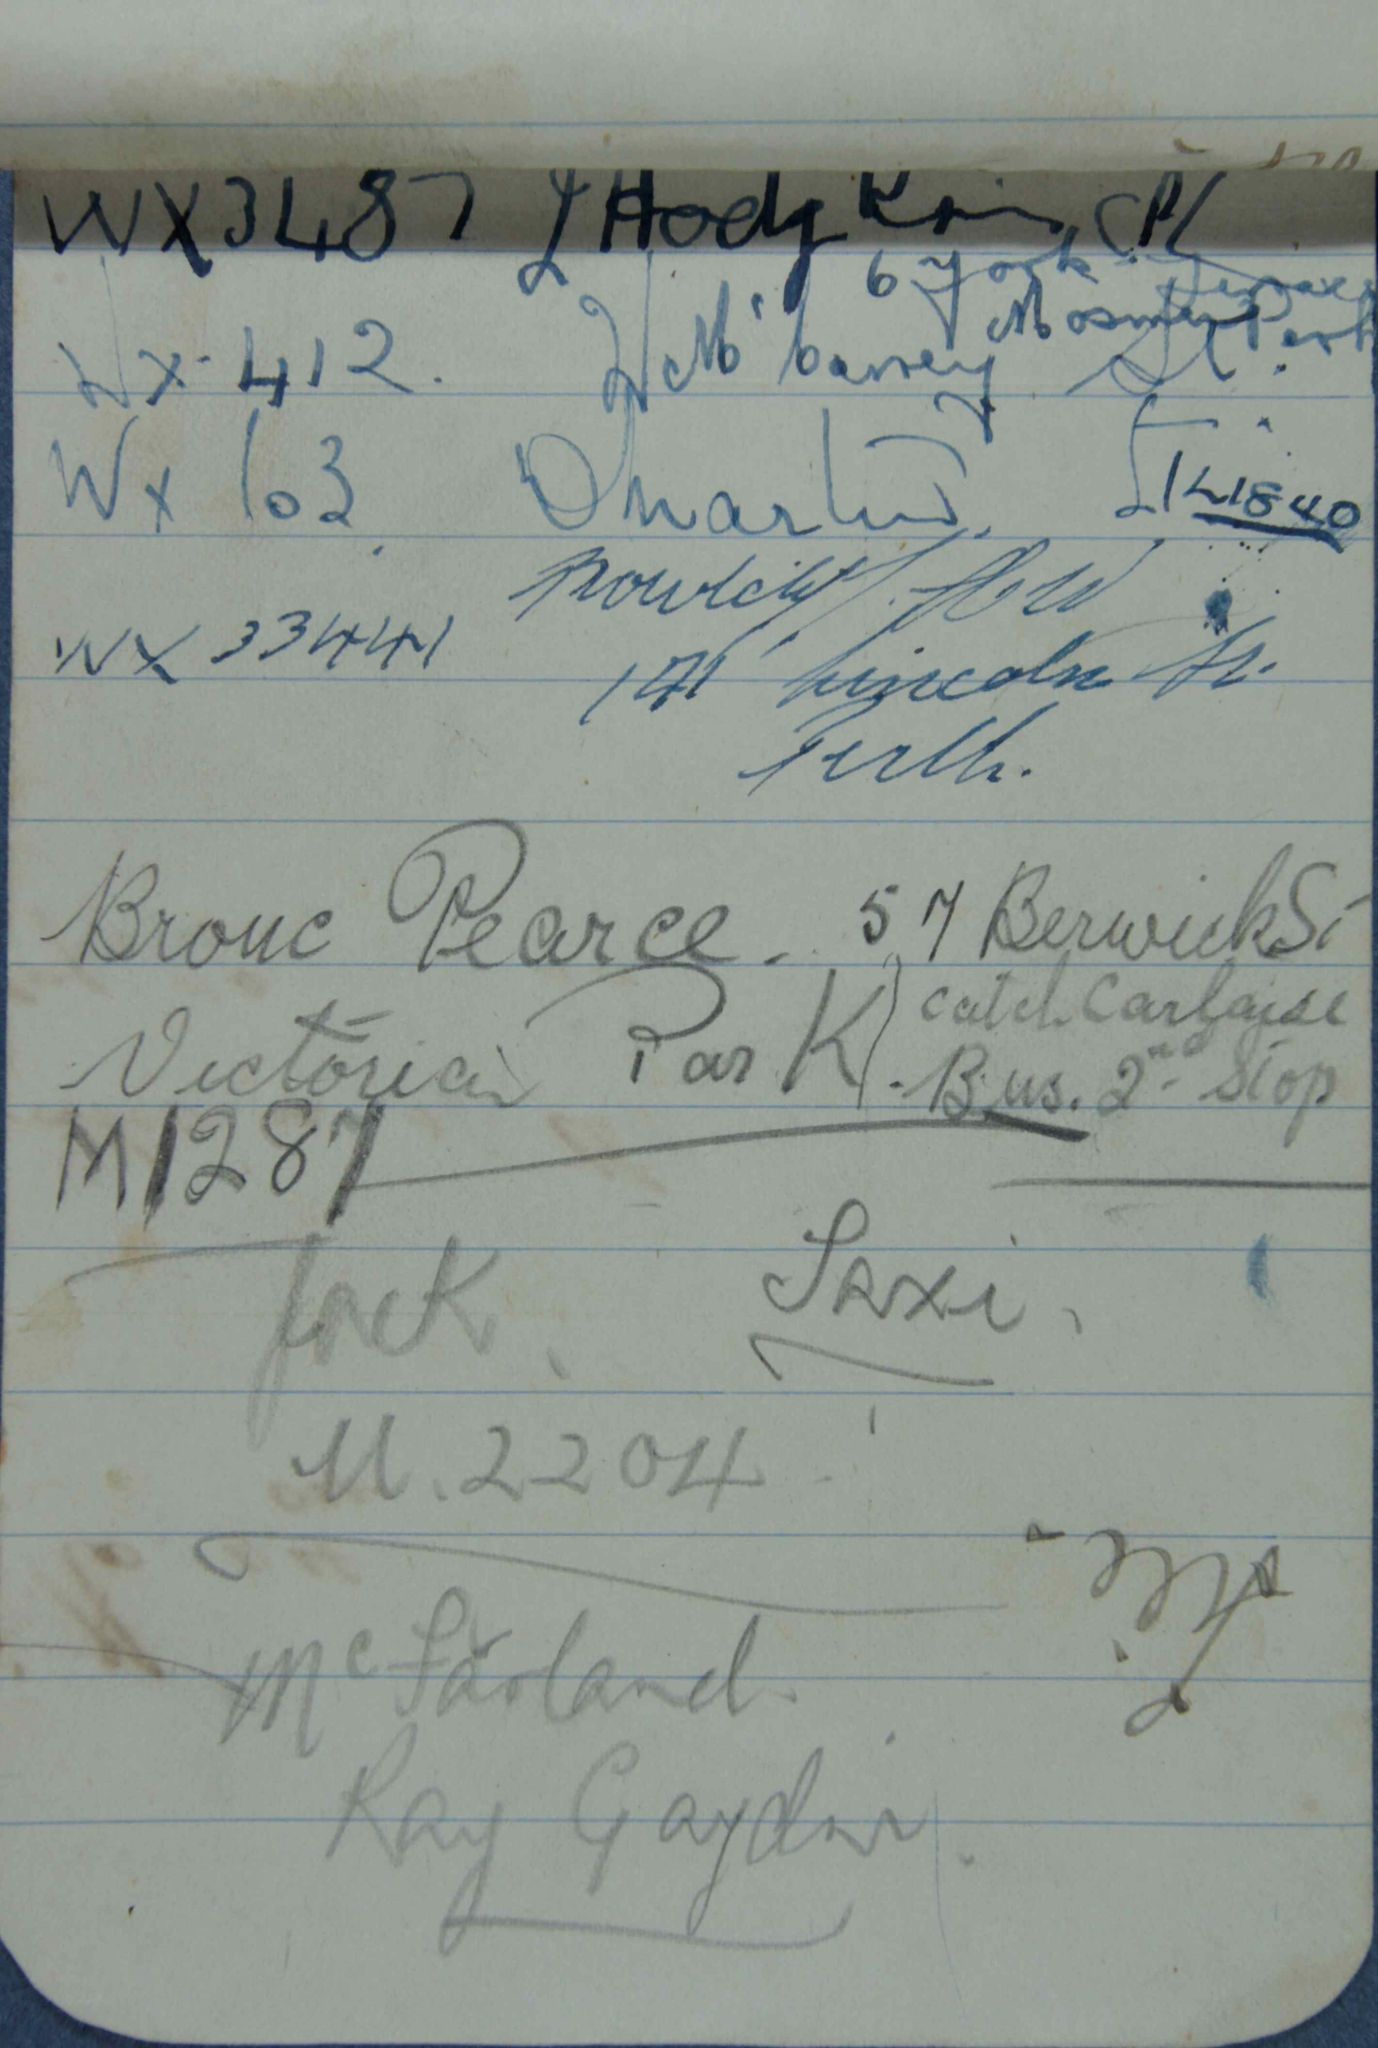 WX3487 Hodgkin CPL
6 York Terrace
Mosman Park
WX 412.
WX 103 Lt
L1840
WX 33441
Lincoln St.
Perth.
Bronc Pearce. 57 Berwick St
Victoria Park catch Carlaise
Bus. 2nd Stop
M1287
Jack Saxi.
M. 2204
McFarland
Ray Gaydon.